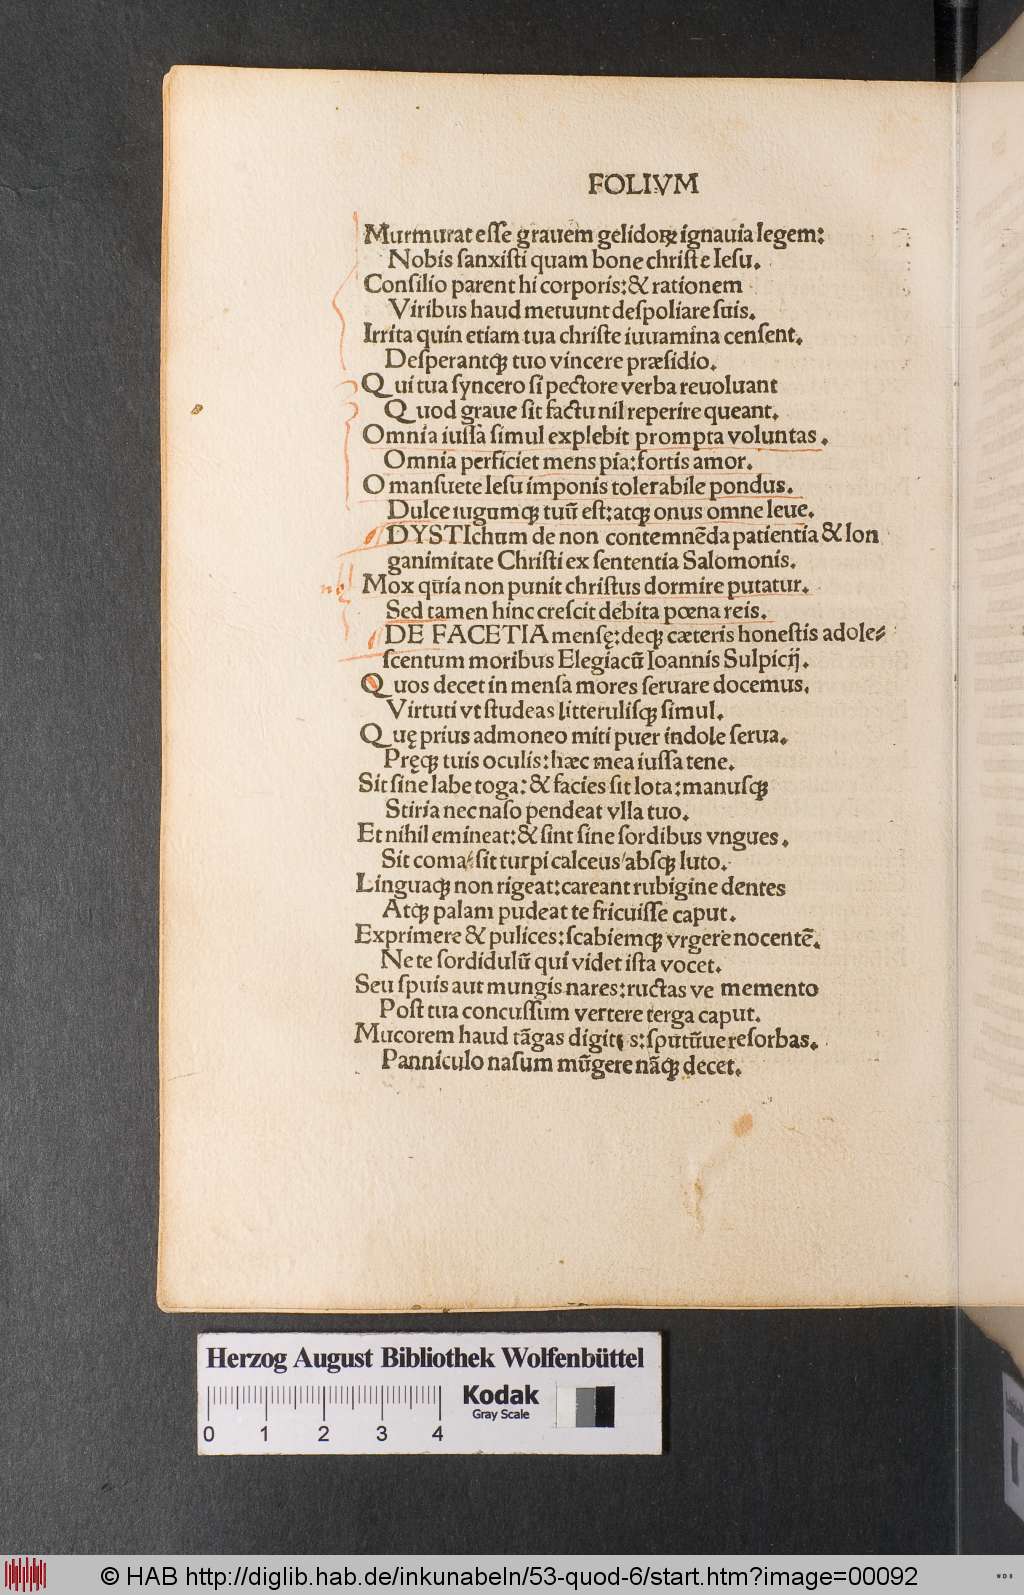 FOLIVM
Murmurat eſſe grauem gelidoꝝ ignauia legem:
Nobis ſanxiſti quam bone chriſte Ieſu.
Conſilio parent hi corporis: & rationem
Viribus haud metuunt deſpoliare ſuis.
Irrita quin etiam tua chriſte iuuamina cenſent.
Deſperantqꝫ tuo vincere præſidio.
Qui tua ſyncero ſi pectore verba reuoluant
Quod graue ſit factu nil reperire queant.
Omnia iuſſa ſimul explebit prompta voluntas.
Omnia perficiet mens pia: fortis amor.
O manſuete Ieſu imponis tolerabile pondus.
Dulce iugumqꝫ tuū eſt: atqꝫ onus omne leue.
DYSTIchum de non contemnēda patientia & lon
ganimitate Chriſti ex ſententia Salomonis.
Mox quia non punit chriſtus dormire putatur.
Sed tamen hinc creſcit debita pœna reis.
DE FACETIA menſę: deqꝫ cæteris honeſtis adole⸗
ſcentum moribus Elegiacū Ioannis Sulpicij.
Quos decet in menſa mores ſeruare docemus.
Virtuti vt ſtudeas litteruliſqꝫ ſimul.
Quę prius admoneo miti puer indole ſerua.
Pręqꝫ tuis oculis: hæc mea iuſſa tene.
Sit ſine labe toga: & facies ſit lota: manuſqꝫ
Stiria nec naſo pendeat vlla tuo.
Et nihil emineat: & ſint ſine ſordibus vngues.
Sit coma/ ſit turpi calceus/ abſqꝫ luto.
Linguaqꝫ non rigeat: careant rubigine dentes
Atqꝫ palam pudeat te fricuiſſe caput.
Exprimere & pulices: ſcabiemqꝫ vrgere nocentē.
Ne te ſordidulū qui videt iſta vocet.
Seu ſpuis aut mungis nares: ructas ve memento
Poſt tua concuſſum vertere terga caput.
Mucorem haud tāgas digitis: ſputūue reſorbas.
Panniculo naſum mūgere nāqꝫ decet.
Herzog August Bibliothek Wolfenbüttel
Kodak
Gray Scale
0 1 2 3 4
© HAB http://diglib.hab.de/inkunabeln/53-quod-6/start.htm?image=00092